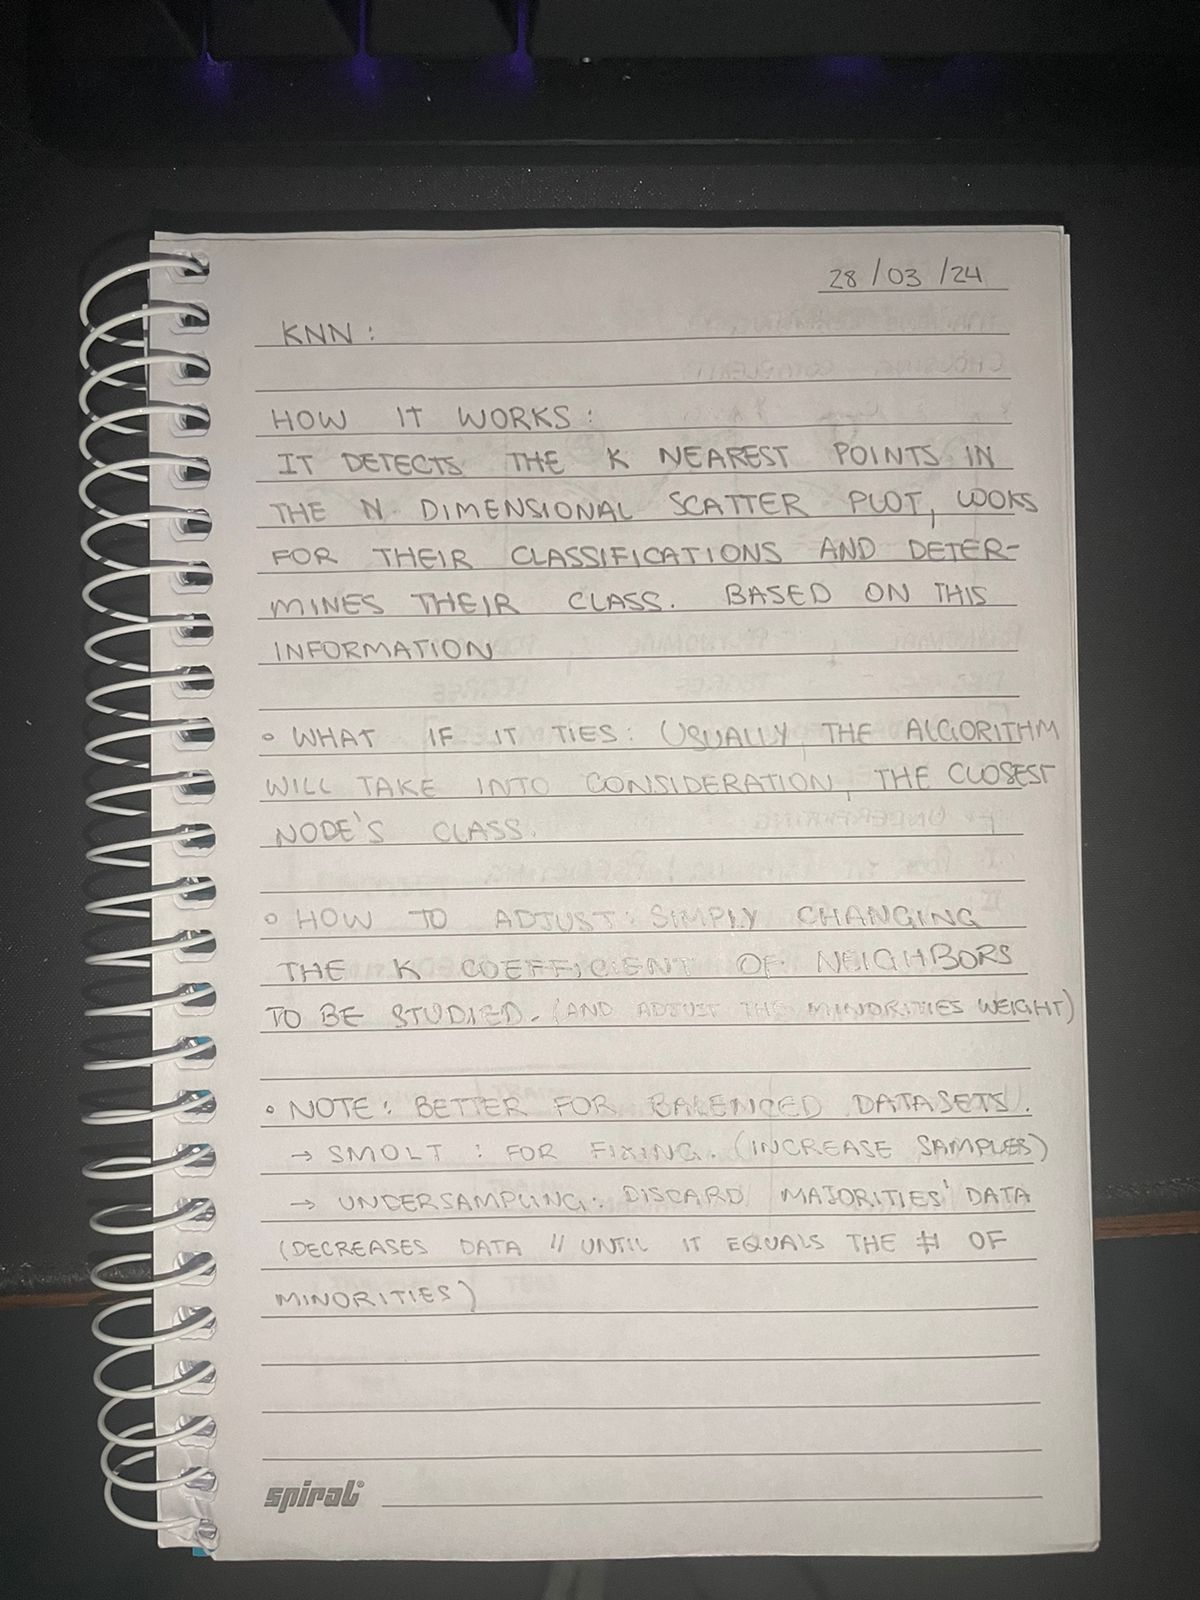 28/03/24
KNN:
HOW IT WORKS:
IT DETECTS THE K NEAREST POINTS IN
THE N DIMENSIONAL SCATTER PLOT, LOOKS
FOR THEIR CLASSIFICATIONS AND DETER-
MINES THEIR CLASS. BASED ON THIS
INFORMATION
• WHAT IF IT TIES: USUALLY, THE ALGORITHM
WILL TAKE INTO CONSIDERATION, THE CLOSEST
NODE'S CLASS.
• HOW TO ADJUST: SIMPLY CHANGING
THE K COEFFICIENT OF NEIGHBORS
TO BE STUDIED. (AND ADJUST THE MINORITIES WEIGHT)
• NOTE: BETTER FOR BALENCED DATASETS.
→ SMOLT: FOR FIXING. (INCREASE SAMPLES)
→ UNDERSAMPLING: DISCARD MAJORITIES' DATA
(DECREASES DATA // UNTIL IT EQUALS THE # OF
MINORITIES)
spiral®